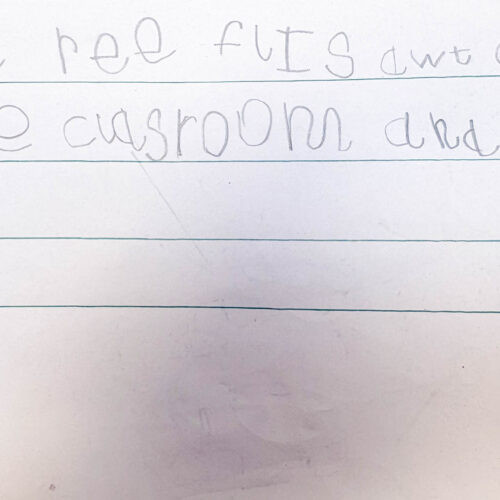 ree flIS awt
e clasroom and